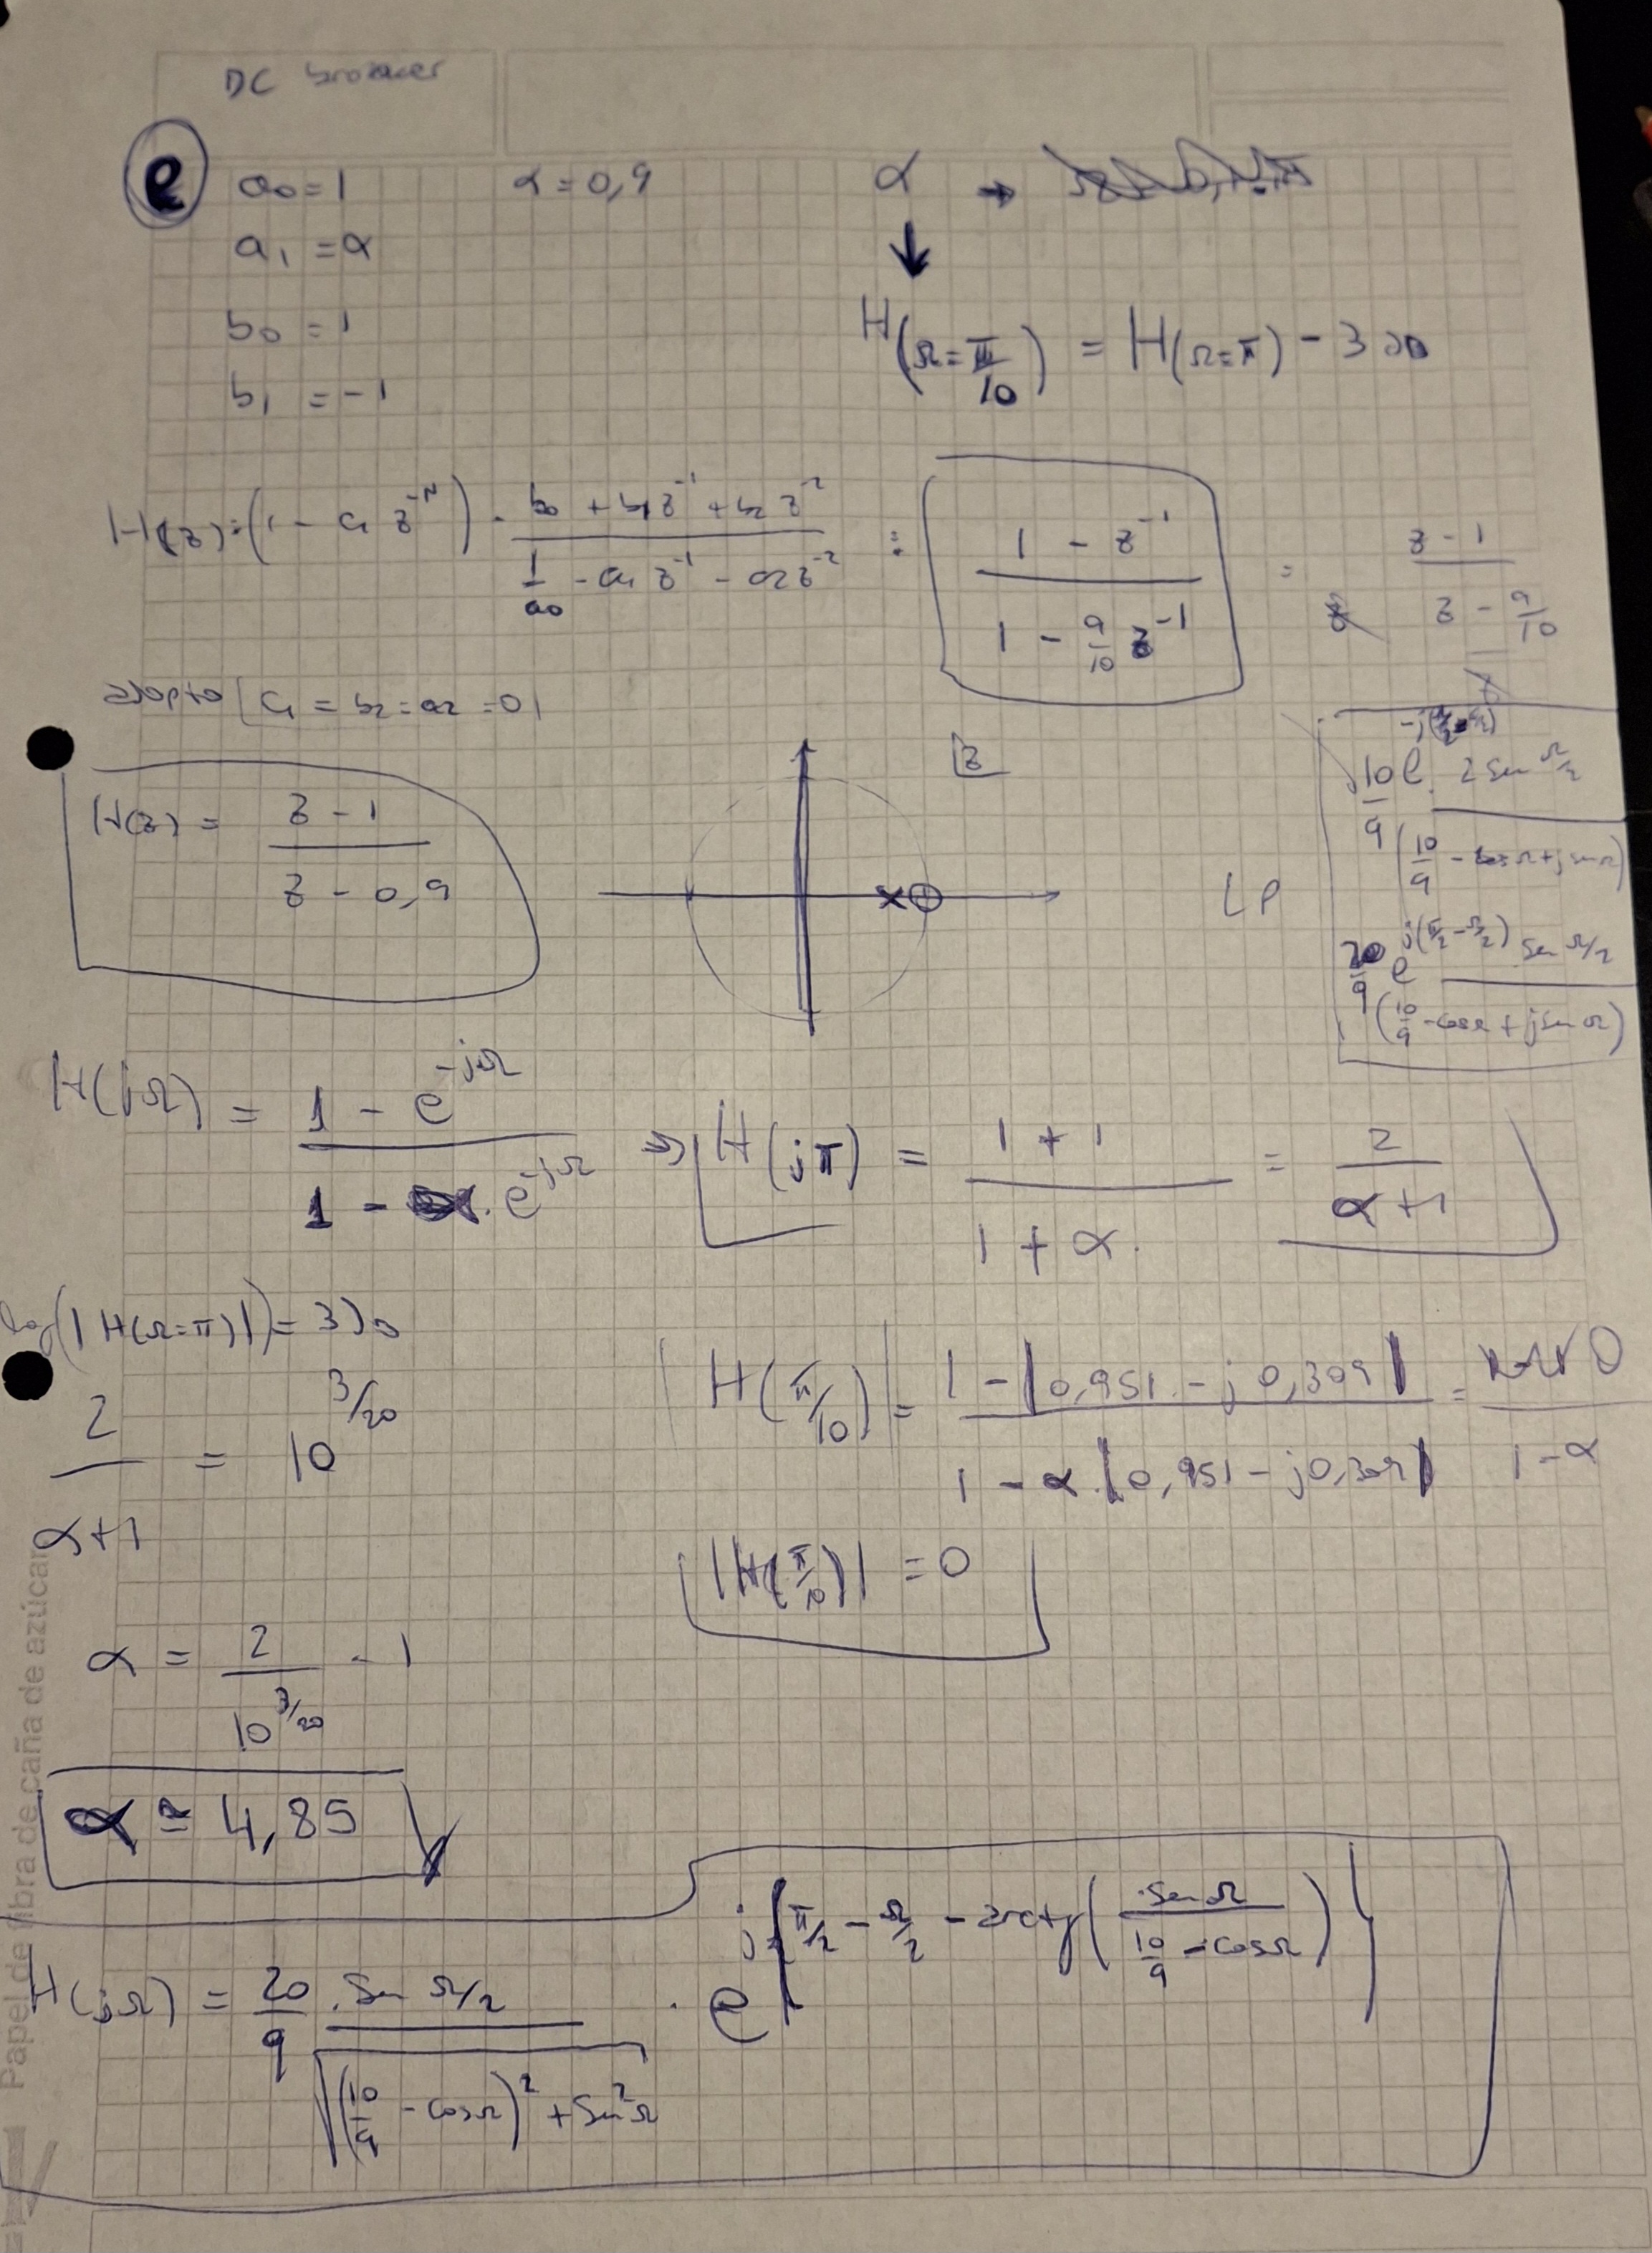 DC
e a₀ = 1 α = 0,9 α →
a₁ = α ↓
b₀ = 1 H(Ω=π/10) = H(Ω=π) - 3 dB
b₁ = -1
H(z) = (1 - c₁ z^-N) . (b₀ + b₁z^-1 + b₂ z^-2) / (1/a₀ - a₁ z^-1 - a₂z^-2) = (1 - z^-1) / (1 - 9/10 z^-1) = (z - 1) / (z - 9/10)
adopto [c₁ = b₂ = a₂ = 0]
H(z) = (z - 1) / (z - 0,9)
z
10/9 e 2 sen Ω/2 / (10/9 - cosΩ + j senΩ)
LP
20/9 e^j(π/2 - Ω/2) sen Ω/2 / (10/9 - cosΩ + j sen Ω)
H(jΩ) = (1 - e^-jΩ) / (1 - α . e^-jΩ) ⇒ H(jπ) = (1 + 1) / (1 + α) = 2 / (α + 1)
log(|H(Ω=π)|) = 3 dB
2 / (α+1) = 10^3/20
|H(π/10)| = (1 - |0,951 - j 0,309|) / (1 - α.|0,951 - j0,309|) = 0 / (1 - α)
|H(π/10)| = 0
α = 2 / 10^3/20 - 1
α ≅ 4,85
H(jΩ) = 20/9 . sen Ω/2 / √((10/9 - cosΩ)² + sen²Ω) . e^j{π/2 - Ω/2 - arctg(senΩ / (10/9 - cosΩ))}
Papel de fibra de caña de azúcar